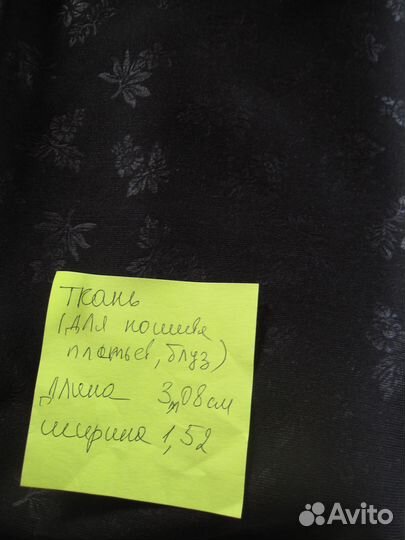 Ткань
(для пошива
платьев, блуз)
Длина 3м08см
Ширина 1,52
Avito